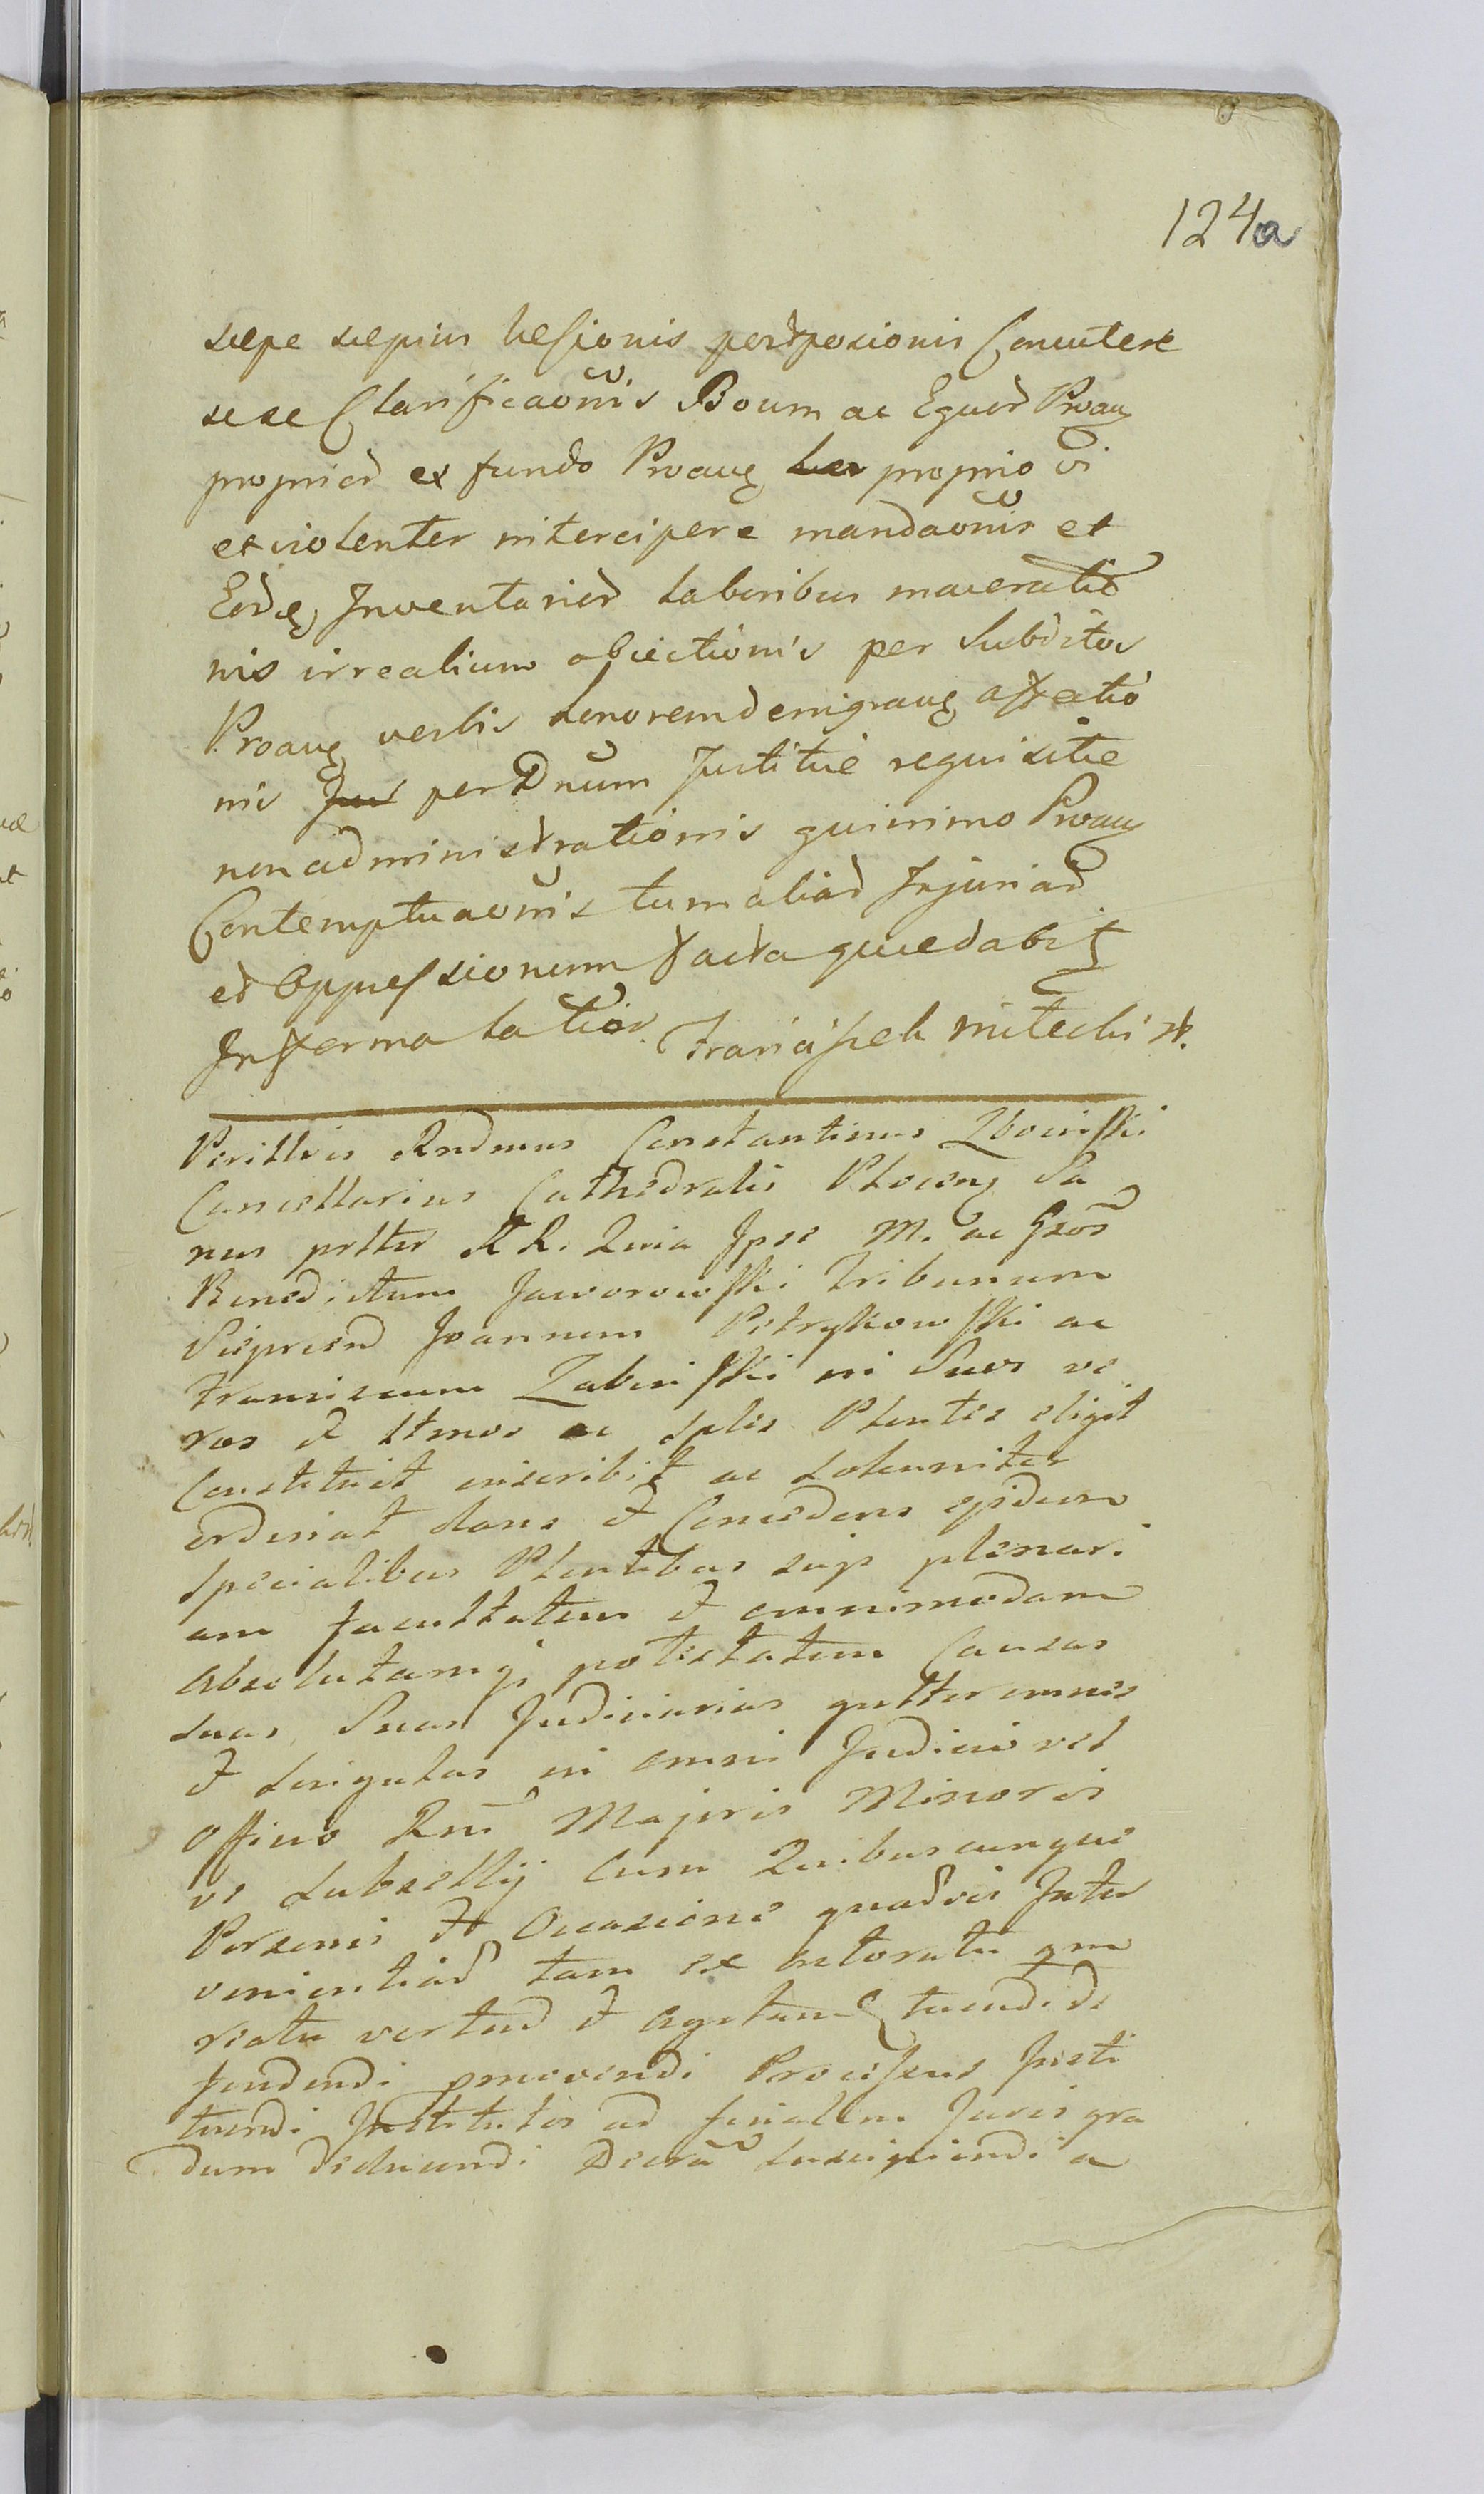 124a
saepe saepius lesionis postposicionis Comittere
sese Clarificaonis Boum ac Equor Proan
proprior ex fundo Proang proprio vi
et violenter intercipere mandaonis et
Eord Inventarior laboribus maceratio
nis irrealium obiectionis per Subditos
Proang verbis honorem denigrang affectio
nis per Dnum Justitiae requisitae
non administrationis quinimo Proan
Contemptuaonis tum aliar Injuriar
et Oppressionum facta quaedabit
Informa latior. Franciszek mp.
Perillris Rndmus Constantinus Zboiński
Cancellarius Cathedralis Plocen Sa
nus prtter R R. Quia Ipse M. ac Gsos
Benedictum Jaworowski Tribunum
Sieprcen Joannem Petrykowski ac
Franciscum Zabinski in Suos ve
ros et ltmos ac splis Plentes eligit
Constituit inscribit ac solemniter
ordinat dans et Concedens ejsdem
specialibus Plentibus suis plenari
am facultatem et omnimodam
absolutamq; potestatem Causas
suas Suas Judiciarias gntter omnes
et singulas in omni Judicio vel
Officio Rni Majoris Minoris
ve Subsellij cum Quibuscunque
Personis et Occasione quadvis Inter
venientiar tam ex actoratu qm
reatu vertend et agitand tuendi de
fendendi pmovendi Processus Insti
tuendi Institutos ad finalem Juris gra
dum deducendi Decra suscipiendi a